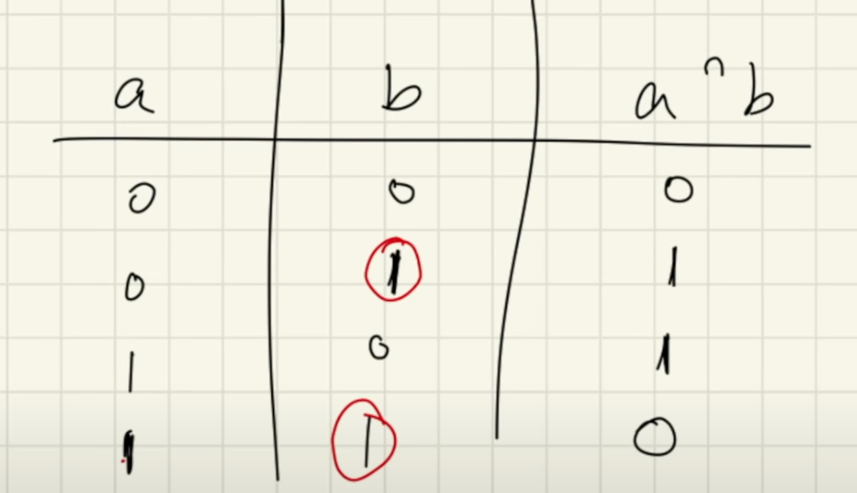 a b a ^ b
0 0 0
0 1 1
1 0 1
1 1 0